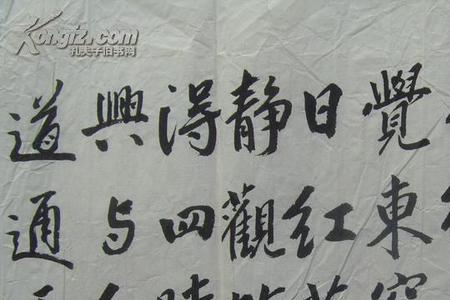 Kongfz.com
孔夫子旧书网
覺東窗
日红
静觀
得四時
興与
道通